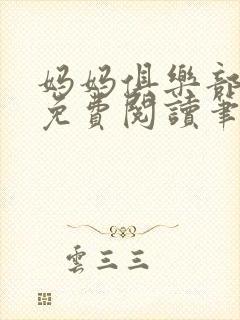 妈妈俱樂部
免費閱讀筆
雲三三